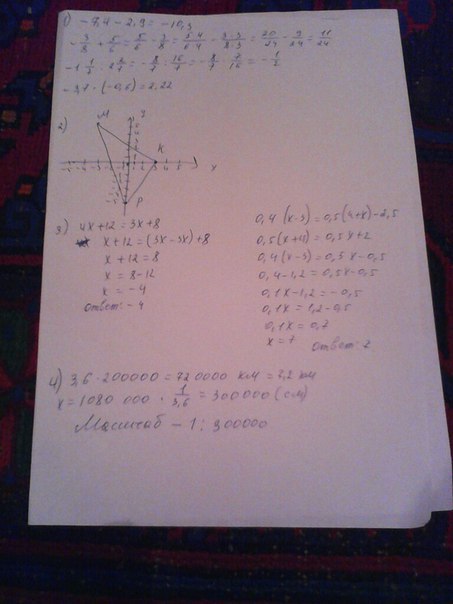 1) -7,4 - 2,9 = -10,3
-3/8 + 5/6 = 5/6 - 3/8 = 5·4/6·4 - 3·3/8·3 = 20/24 - 9/24 = 11/24
-1 1/7 : 2 2/7 = -8/7 : 16/7 = -8/7 · 7/16 = -1/2
-3,7 · (-0,6) = 2,22
2)
M
K
P
x
3) 4x+12=3x+8
x+12=(3x-3x)+8
x+12=8
x=8-12
x=-4
ответ: -4
0,4(x-3)=0,5(4+x)-2,5
0,5(x+4)=0,5x+2
0,4(x-3)=0,5x-0,5
0,4-1,2=0,5x-0,5
0,1x-1,2=-0,5
0,1x=1,2-0,5
0,1x=0,7
x=7
ответ: 7
4) 3,6·200000=720000 км=7,2 км
x=1080 000 · 1/3,6 = 300000 (см)
Масштаб - 1:300000